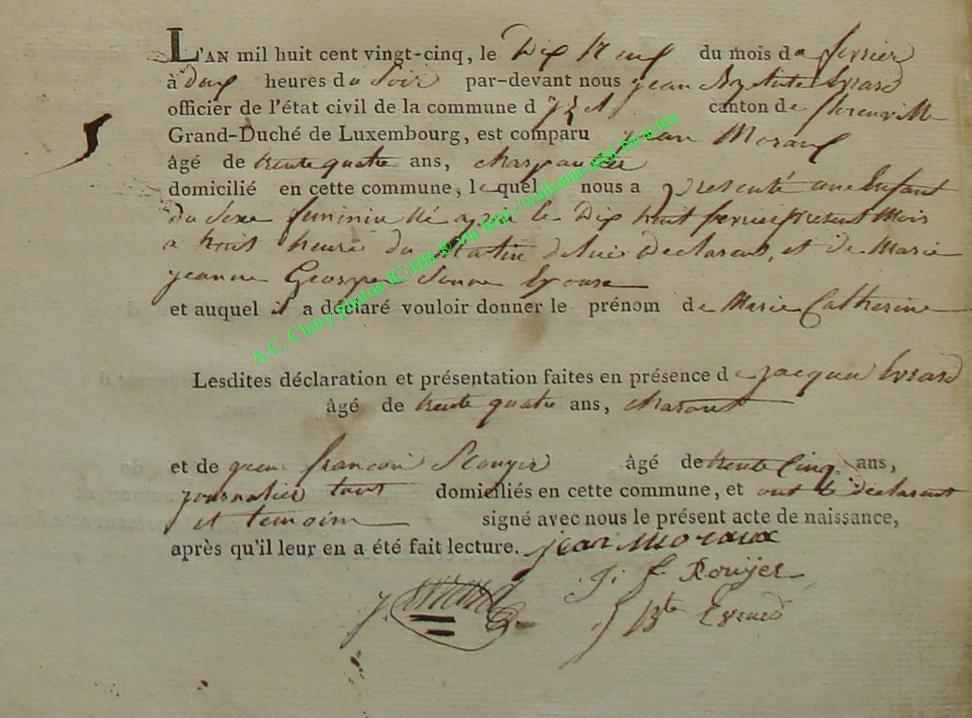 L'AN mil huit cent vingt-cinq, le Dix Neuf du mois de fevrier
à deux heures du Soir par-devant nous jean Bptiste Evrard
officier de l'état civil de la commune d canton de florenville
Grand-Duché de Luxembourg, est comparu jean Moraux
âgé de trente quatre ans, charpentier
domicilié en cette commune, lequel nous a presenté une Enfant
du Sexe feminin Né le Dix huit fevrier present Mois
a trois heure du Matin de lui Declarant, et de Marie
jeanne Sonne Epouse
et auquel il a déclaré vouloir donner le prénom de Marie Catherine
Lesdites déclaration et présentation faites en présence de jacques Evrard
âgé de trente quatre ans, charon
et de françois âgé de trente Cinq ans,
journalier tous domiciliés en cette commune, et ont le declarant
et temoins signé avec nous le présent acte de naissance,
après qu'il leur en a été fait lecture. jean moraux
j. f. Rouyer
j. Evrard
j Bte Evrard
5
A.C. Chiny photos JC/HB © via http://wallonia-asbl.be/actes